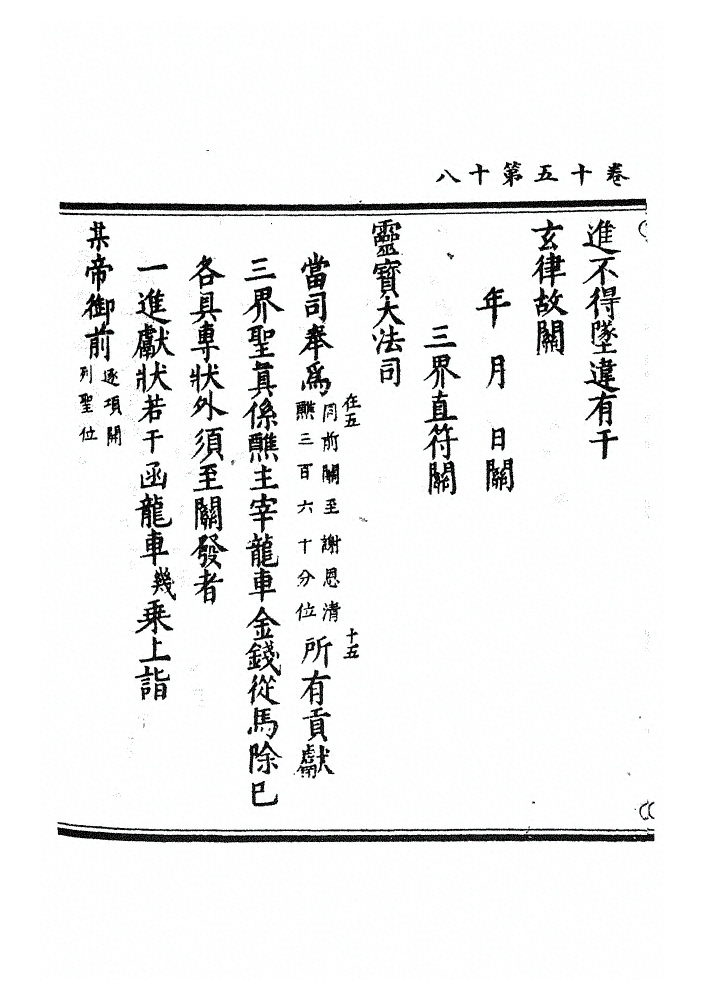 卷十五第十八
進不得墜違有干
玄律故關
年 月 日關
三界直符關
靈寶大法司
當司奉爲在五同前關至謝恩清醮三百六十分位十五所有貢獻
三界聖真係醮主宰龍車金錢從馬除已
各具專狀外須至關發者
一進獻狀若干函龍車幾乘上詣
某帝御前逐項開列聖位